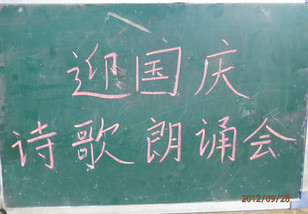 迎国庆
诗歌朗诵会
2012/09/28